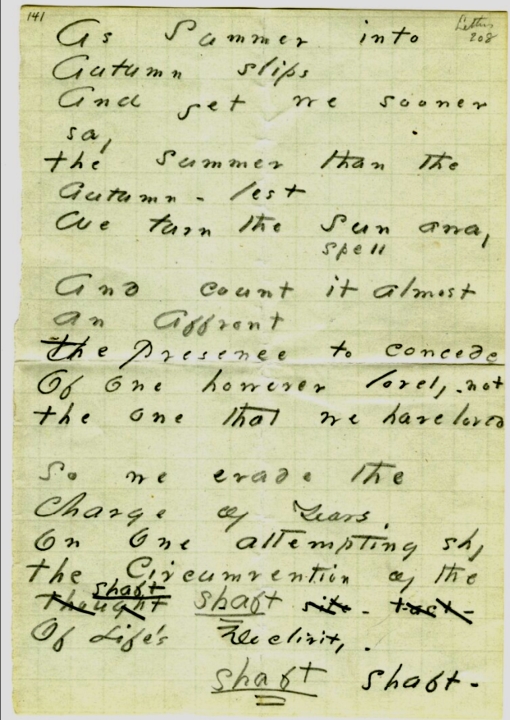 141
Letters
208
As Summer into
Autumn slips
And yet we sooner
say
the Summer than the
Autumn - lest
We turn the Sun away
spell
And count it almost
an Affront
the Presence to concede
Of One however lovely, not
the one that we have loved
So we evade the
Charge of Years
On One attempting shy
the Circumvention of the
shaft
Thought shaft site - tact -
Of Life's Declivity.
shaft shaft -